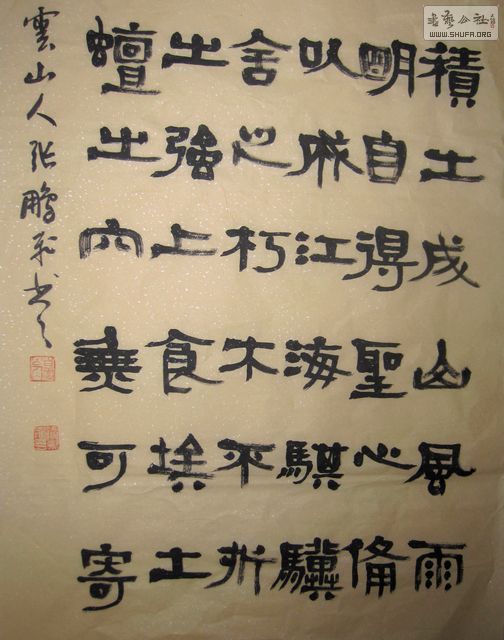 書藝公社
WWW.SHUFA.ORG
積土成山風雨
明自得聖心備
以成江海騏驥
舍之朽木不折
之強上食埃土
蟺之穴無可寄
雲山人張鵬書